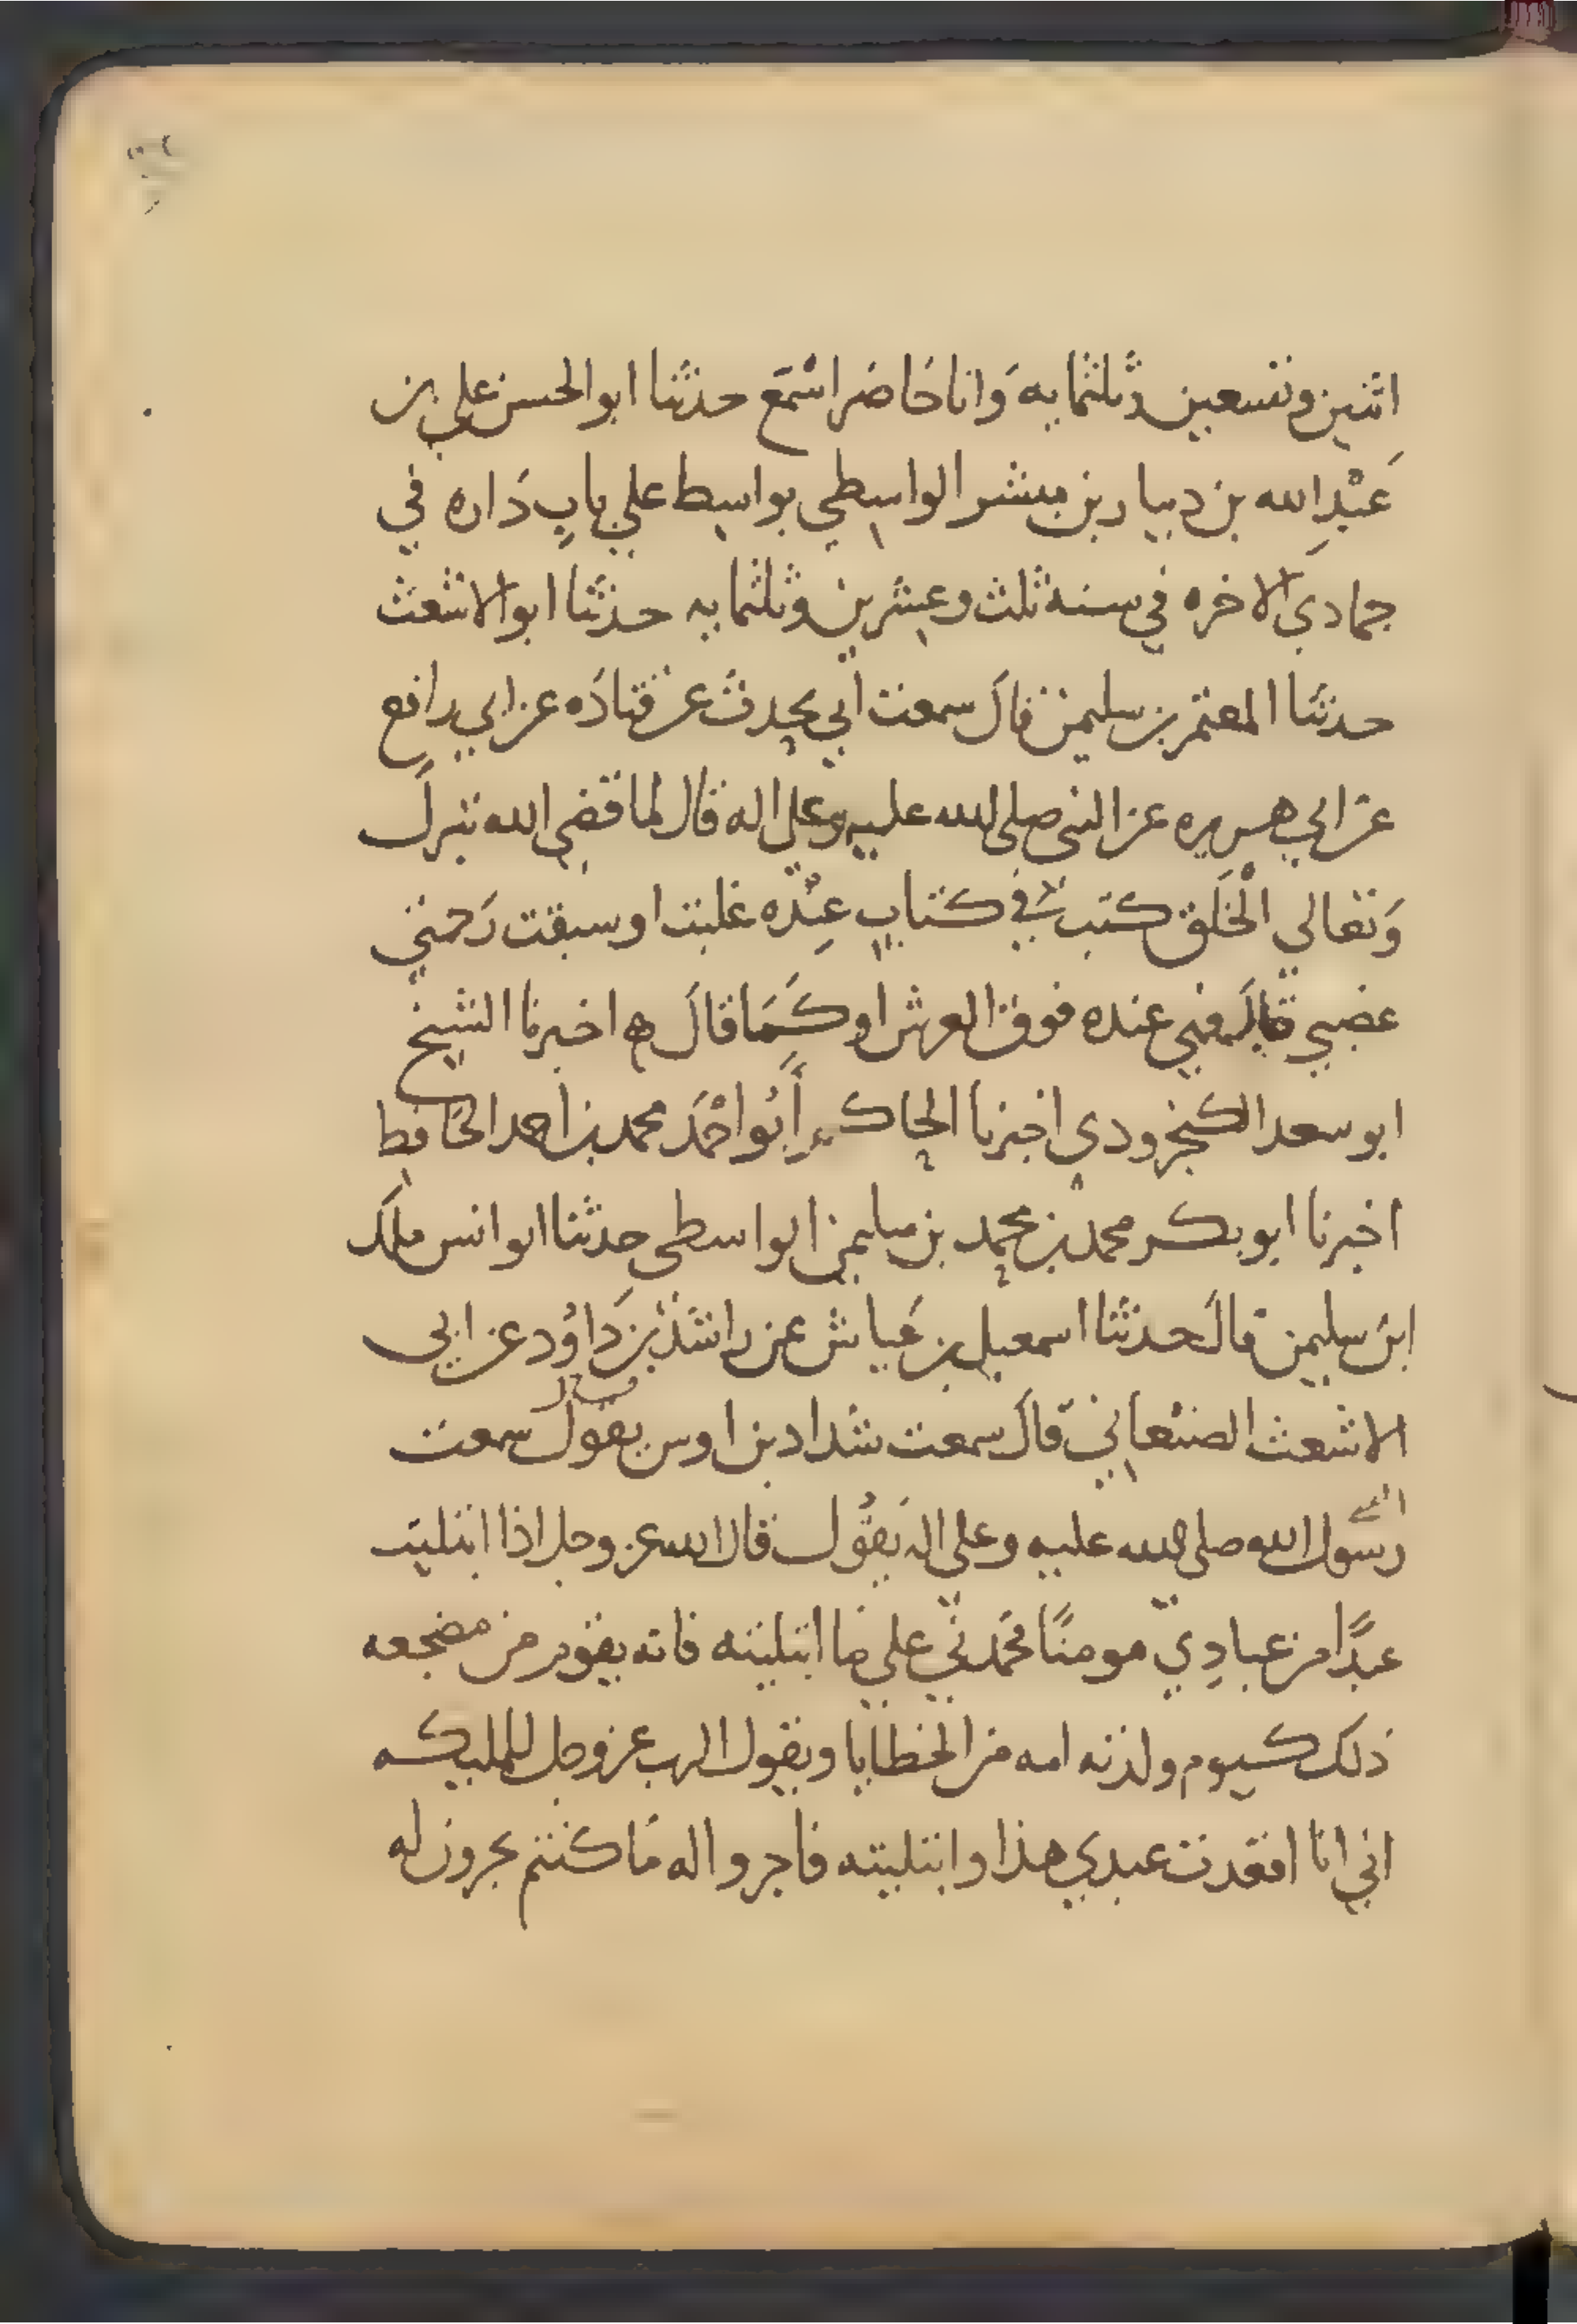 اثنين وتسعين وثلثمايه وَانا حَاضر اسْمَع حدثنا ابو الحسن علي بن
عَبْدِ الله بن دينار بن مبشر الواسطي بواسط علي بابِ دَاره في
جمادي الاخره في سنه ثلث وعشرين وثلثمايه حدثنا ابو الاشعث
حدثنا المعتمر بن سليمن قالَ سمعت ابي يحدث عن قتادَه عن ابي رافع
عن ابي هريره عن النبي صلى الله عليه وعلي اله قال لما قضي الله تبرك
وَتعالي الْخَلق كتب في كتابٍ عِنْدَه غلبت او سبقت رَحمتي
غضبي قال فهي عنده فوق العرش او كَمَا قالَ ه اخبرنا الشيخ
ابو سعد الكنجرودي اخبرنا الحاكم أَبُو احْمَدَ محمد بن احمد الحَافظ
اخبرنا ابو بكر محمد بن محمد بن سليمن الواسطي حدثنا ابو انس ملك
ابن سليمن قالَ حدثنا اسمعيل بن عَياش عن راشد بْن دَاوُد عن ابي
الاشعث الصنْعاني قالَ سمعت شداد بن اوس يقول سمعت
رسول الله صلى الله عليه وعلي اله يَقُول قال الله عز وجل اذا ابتليت
عبدًا من عبادِي مومنًا فحَمدني علي ما ابتليته فانه يقوم من مضجعه
ذلك كيوم ولدته امه من الخطايا ويقول الرب عز وجل للمليكه
اني انا اقعدت عبدي هذا وابتليته فاجروا له مَا كنتم تجرون له